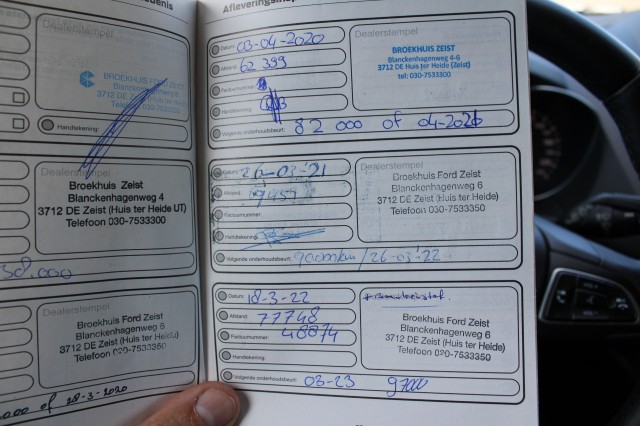 edenis
Dealerstempel
BROEKHUIS FORD ZEIST
3712 DE Huis ter Heide (Zeist)
Handtekening:
Dealerstempel
Broekhuis Zeist
Blanckenhagenweg 4
3712 DE Zeist (Huis ter Heide UT)
Telefoon 030-7533300
Dealerstempel
Broekhuis Ford Zeist
Blanckenhagenweg 6
3712 DE Zeist (Huis ter Heide)
Telefoon 030-7533350
of 28-3-2020
Datum: 03-04-2020
Afstand: 62 399
Factuurnummer:
Handtekening:
Volgende onderhoudsbeurt: 82 000 of 04-2021
Dealerstempel
BROEKHUIS ZEIST
Blanckenhagenweg 4-6
3712 DE Huis ter Heide (Zeist)
tel: 030-7533300
Datum: 26-03-'21
Afstand:
Factuurnummer:
Handtekening:
Volgende onderhoudsbeurt: 90000km/26-03-'22
Dealerstempel
Broekhuis Ford Zeist
Blanckenhagenweg 6
3712 DE Zeist (Huis ter Heide)
Telefoon 030-7533350
Datum: 18-3-22
Afstand: 77748
Factuurnummer: 48874
Handtekening:
Volgende onderhoudsbeurt: 03-23 97000
Broekhuis Ford Zeist
Blanckenhagenweg 6
3712 DE Zeist (Huis ter Heide)
Telefoon 030-7533350